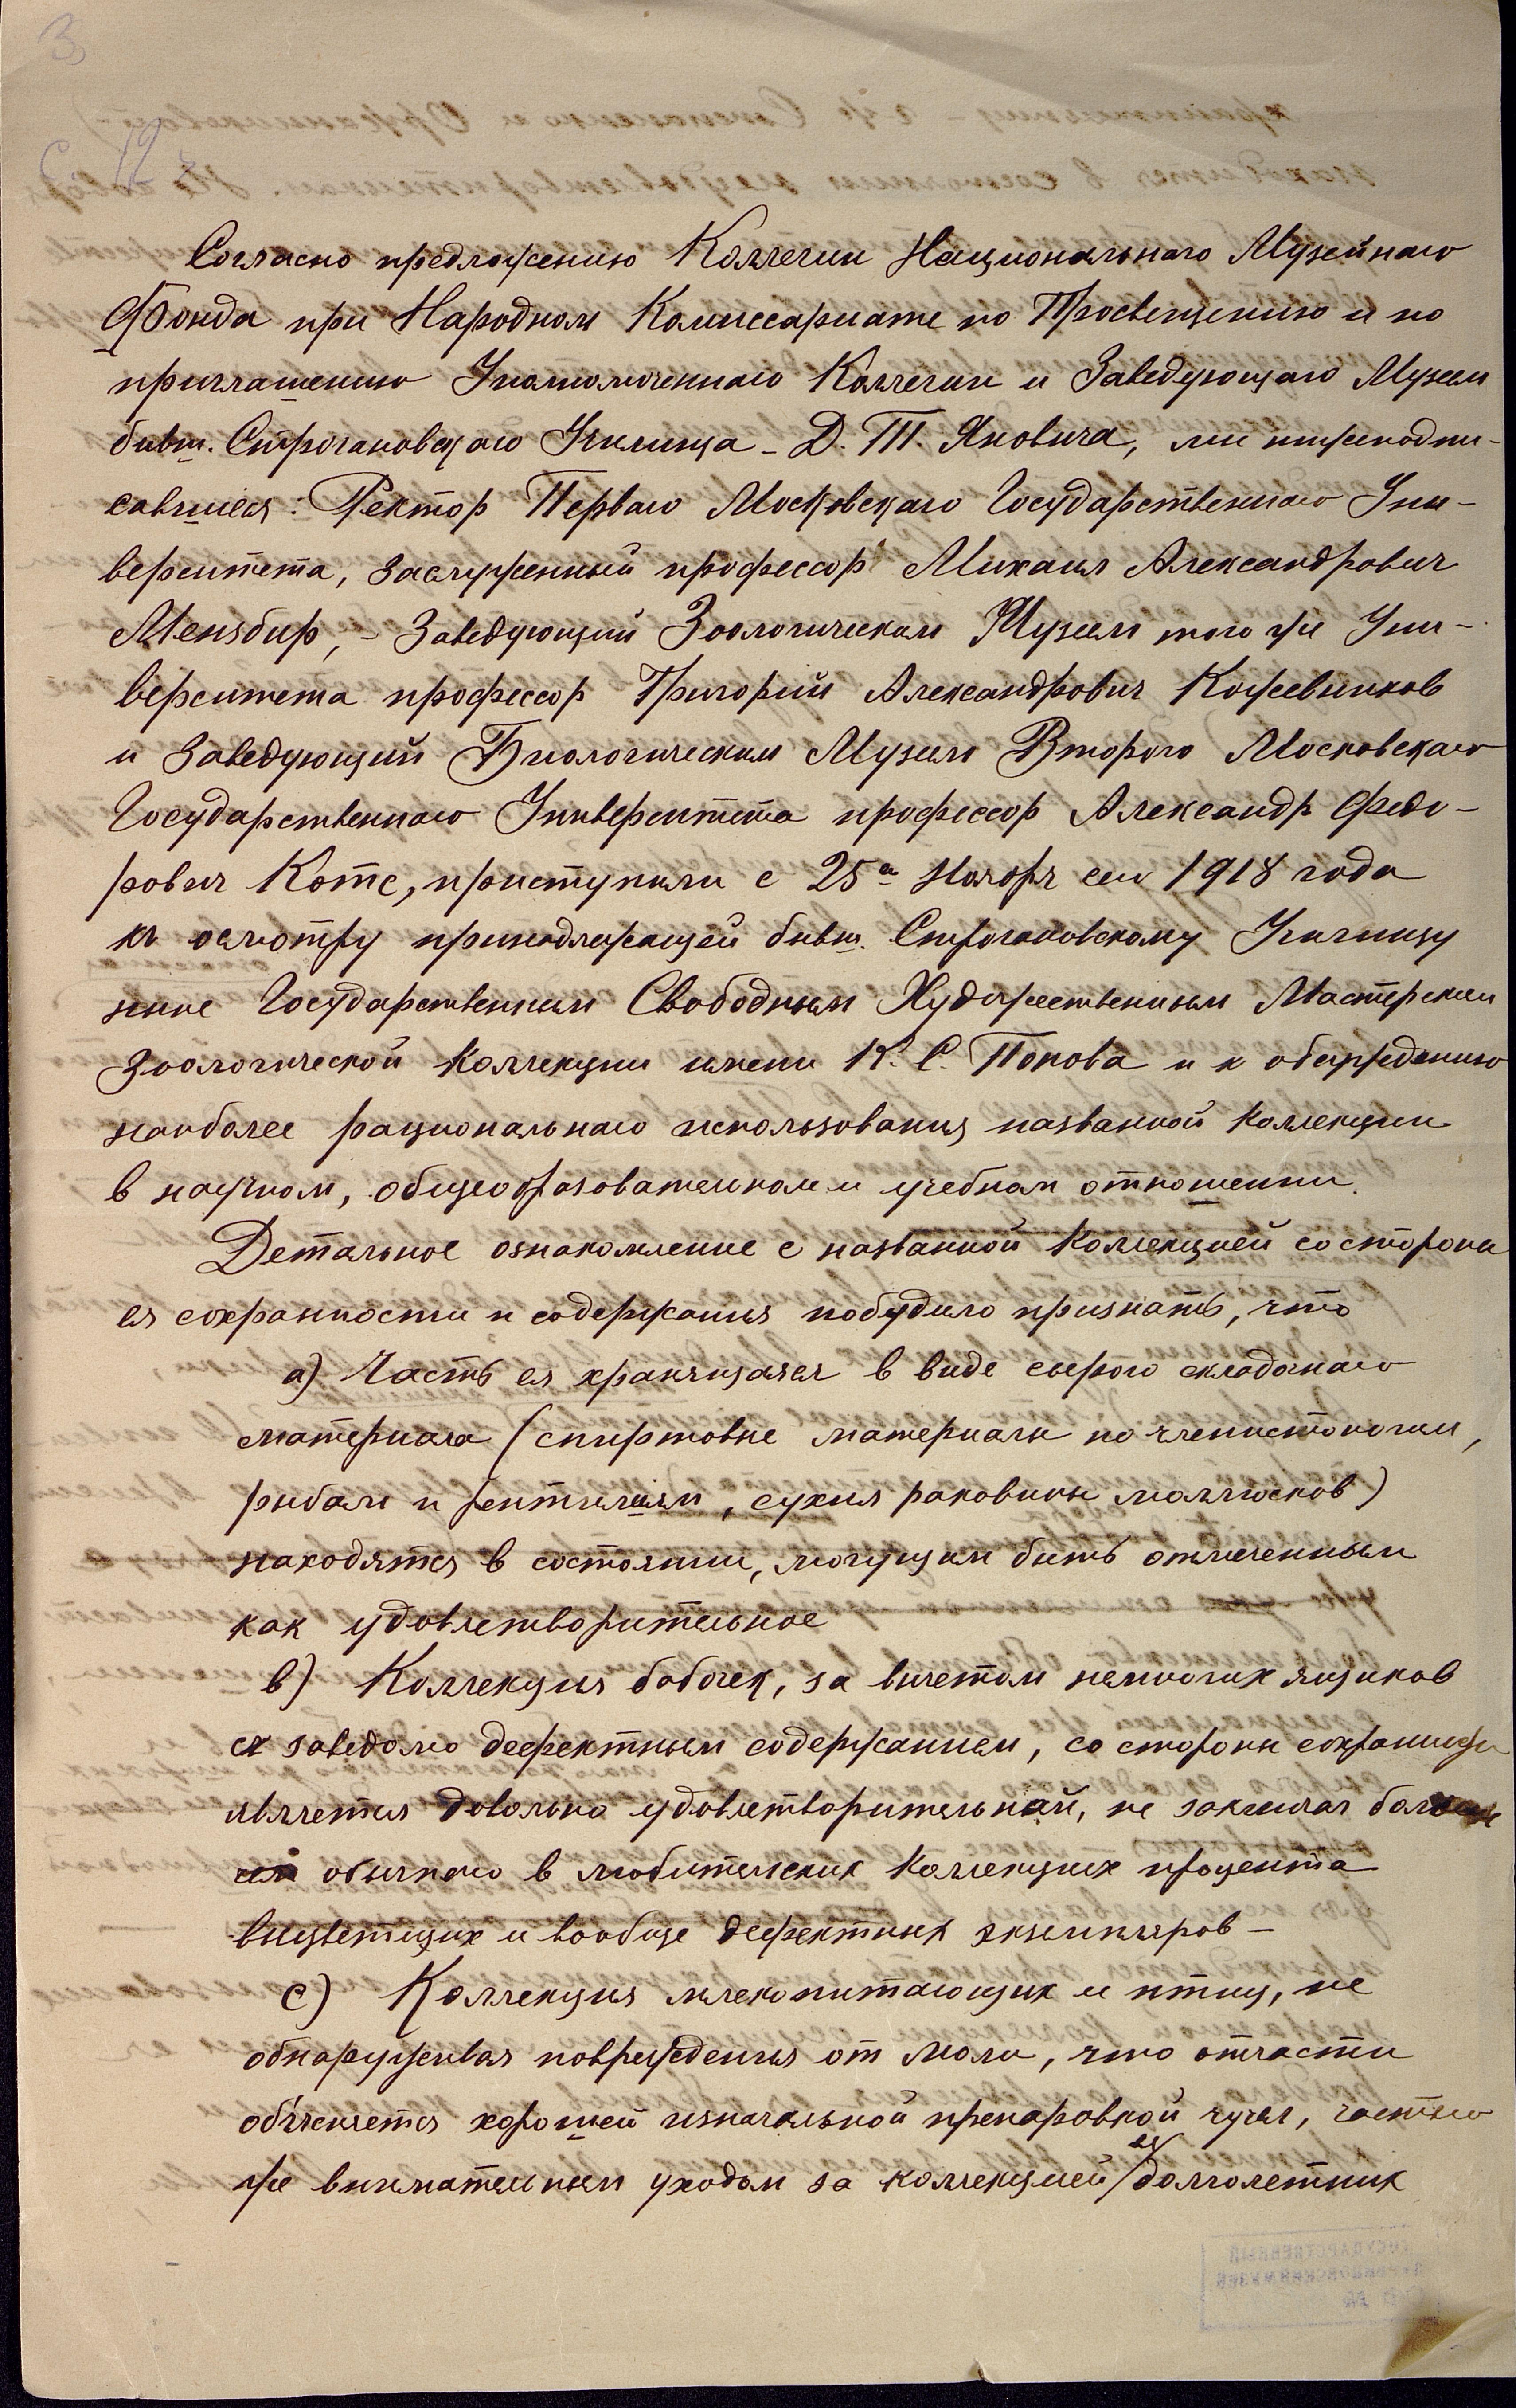 3
Согласно предложению Коллегии Национальнаго Музейнаго
Фонда при Народном Комиссариате по Просвещению и по
приглашению Уполномоченнаго Коллегии и Заведующаго Музеем
бывш. Строгановскаго Училища - Д. Т. Яновича, мы нижеподпи-
савшиеся: Ректор Перваго Московскаго Государственнаго Уни-
верситета, заслуженный профессор Михаил Александрович
Мензбир, - Заведующий Зоологическим Музеем того же Уни-
верситета профессор Григорий Александрович Кожевников
и Заведующий Биологическим Музеем Второго Московскаго
Государственнаго Университета профессор Александр Федо-
рович Котс, приступили с 25го Ноября сего 1918 года
к осмотру принадлежащей бывш. Строгановскому Училищу
ныне Государственным Свободным Художественным Мастерским
Зоологической Коллекции имени К. С. Попова и к обсуждению
наиболее рациональнаго использования названной Коллекции
в научном, общеобразовательном и учебном отношении.
Детальное ознакомление с названной Коллекцией со стороны
ея сохранности и содержания побудило признать, что
а) Часть ея хранящаяся в виде сырого складочнаго
материала (спиртовые материалы по членистоногим,
рыбам и рептилиям, сухия раковины моллюсков)
находятся в состоянии, могущем быть отмеченным
как удовлетворительное
в) Коллекция бабочек, за вычетом немногих ящиков
с заведомо дефектным содержанием, со стороны сохранности
является довольно удовлетворительной, не заключая больше
обычнаго в любительских Коллекциях процента
выцветших и вообще дефектных экземпляров -
с) Коллекция млекопитающих и птиц, не
обнаруживая повреждения от моли, что отчасти
объясняется хорошей изначальной препаровкой чучел, частью
же внимательным уходом за коллекцией ея долголетних